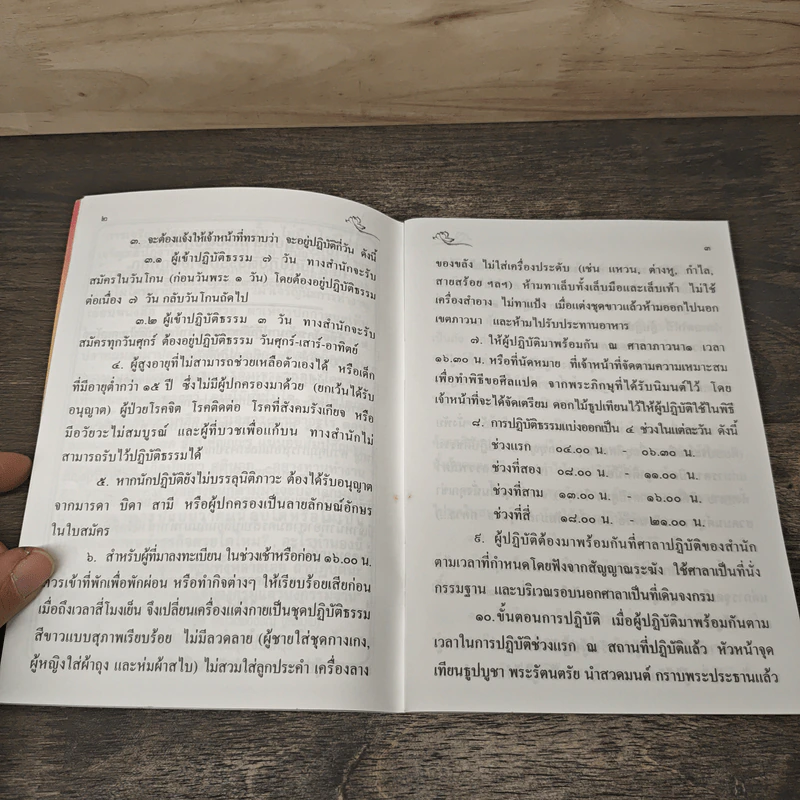 ๒
๓. จะต้องแจ้งให้เจ้าหน้าที่ทราบว่า จะอยู่ปฏิบัติกี่วัน ดังนี้
๓.๑ ผู้เข้าปฏิบัติธรรม ๗ วัน ทางสำนักจะรับ
สมัครในวันโกน (ก่อนวันพระ ๑ วัน) โดยต้องอยู่ปฏิบัติธรรม
ต่อเนื่อง ๗ วัน กลับวันโกนถัดไป
๓.๒ ผู้เข้าปฏิบัติธรรม ๓ วัน ทางสำนักจะรับ
สมัครทุกวันศุกร์ ต้องอยู่ปฏิบัติธรรม วันศุกร์-เสาร์-อาทิตย์
๔. ผู้สูงอายุที่ไม่สามารถช่วยเหลือตัวเองได้ หรือเด็ก
ที่มีอายุต่ำกว่า ๑๕ ปี ซึ่งไม่มีผู้ปกครองมาด้วย (ยกเว้นได้รับ
อนุญาต) ผู้ป่วยโรคจิต โรคติดต่อ โรคที่สังคมรังเกียจ หรือ
มีอวัยวะไม่สมบูรณ์ และผู้ที่บวชเพื่อแก้บน ทางสำนักไม่
สามารถรับไว้ปฏิบัติธรรมได้
๕. หากนักปฏิบัติยังไม่บรรลุนิติภาวะ ต้องได้รับอนุญาต
จากมารดา บิดา สามี หรือผู้ปกครองเป็นลายลักษณ์อักษร
ในใบสมัคร
๖. สำหรับผู้ที่มาลงทะเบียน ในช่วงเช้าหรือก่อน ๑๖.๐๐ น.
ควรเข้าที่พักเพื่อพักผ่อน หรือทำกิจต่างๆ ให้เรียบร้อยเสียก่อน
เมื่อถึงเวลาสี่โมงเย็น จึงเปลี่ยนเครื่องแต่งกายเป็นชุดปฏิบัติธรรม
สีขาวแบบสุภาพเรียบร้อย ไม่มีลวดลาย (ผู้ชายใส่ชุดกางเกง,
ผู้หญิงใส่ผ้าถุง และห่มผ้าสไบ) ไม่สวมใส่ลูกประคำ เครื่องลาง
๓
ของขลัง ไม่ใส่เครื่องประดับ (เช่น แหวน, ต่างหู, กำไล,
สายสร้อย ฯลฯ) ห้ามทาเล็บทั้งเล็บมือและเล็บเท้า ไม่ใช้
เครื่องสำอาง ไม่ทาแป้ง เมื่อแต่งชุดขาวแล้วห้ามออกไปนอก
เขตภาวนา และห้ามไปรับประทานอาหาร
๗. ให้ผู้ปฏิบัติมาพร้อมกัน ณ ศาลาภาวนา๑ เวลา
๑๖.๓๐ น. หรือที่นัดหมาย ที่เจ้าหน้าที่จัดตามความเหมาะสม
เพื่อทำพิธีขอศีลแปด จากพระภิกษุที่ได้รับนิมนต์ไว้ โดย
เจ้าหน้าที่จะได้จัดเตรียม ดอกไม้ธูปเทียนไว้ให้ผู้ปฏิบัติใช้ในพิธี
๘. การปฏิบัติธรรมแบ่งออกเป็น ๔ ช่วงในแต่ละวัน ดังนี้
ช่วงแรก ๐๔.๐๐ น. - ๐๖.๓๐ น.
ช่วงที่สอง ๐๘.๐๐ น. - ๑๑.๐๐ น.
ช่วงที่สาม ๑๓.๐๐ น. - ๑๖.๐๐ น.
ช่วงที่สี่ ๑๘.๐๐ น. - ๒๑.๐๐ น.
๙. ผู้ปฏิบัติต้องมาพร้อมกันที่ศาลาปฏิบัติของสำนัก
ตามเวลาที่กำหนดโดยฟังจากสัญญาณระฆัง ใช้ศาลาเป็นที่นั่ง
กรรมฐาน และบริเวณรอบนอกศาลาเป็นที่เดินจงกรม
๑๐. ขั้นตอนการปฏิบัติ เมื่อผู้ปฏิบัติมาพร้อมกันตาม
เวลาในการปฏิบัติช่วงแรก ณ สถานที่ปฏิบัติแล้ว หัวหน้าจุด
เทียนธูปบูชา พระรัตนตรัย นำสวดมนต์ กราบพระประธานแล้ว